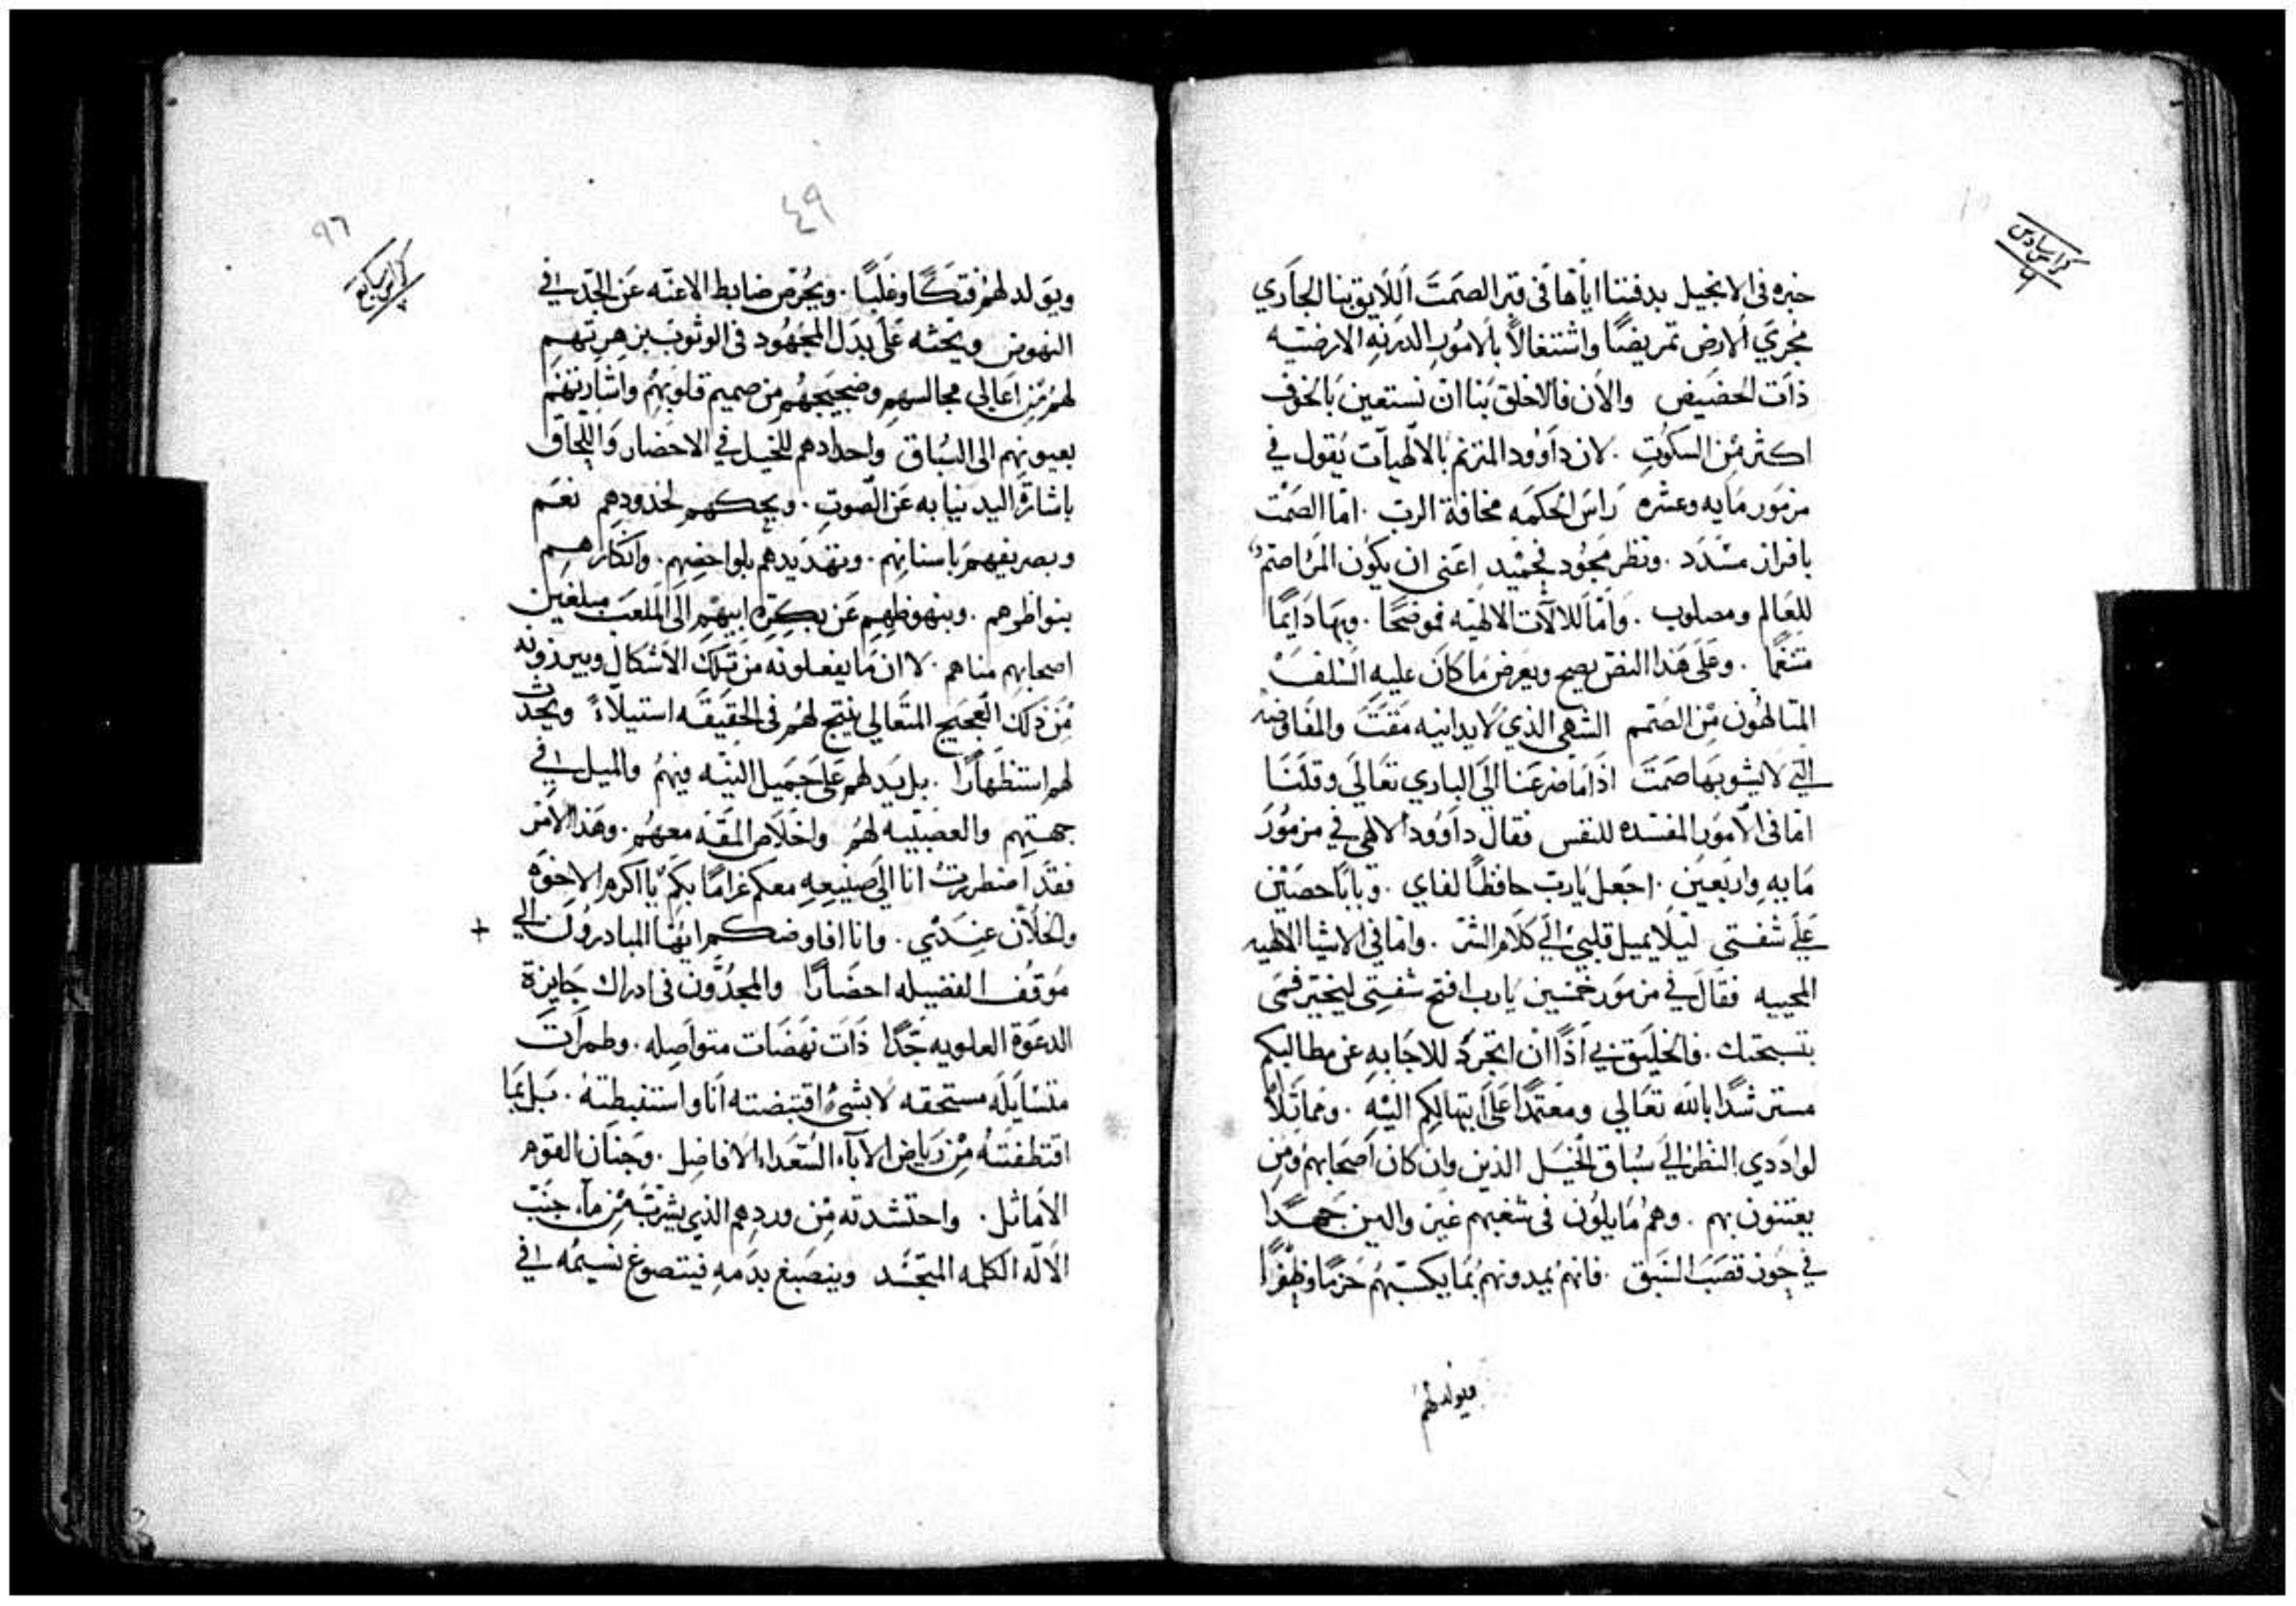 كراس سادس
٦
خبره فى الانجيل بدفنتنا اياها فى قبر الصمت اللايق بنا الجاري
مجري الارض تمريضًا واشتغالاً بالامور الدرنه الارضيه
ذات الحضيض والان فالاخلق بنا ان نستعين بالخوف
اكثر من السكوت . لان داوود المترنم بالالهيات يقول في
مزمور مايه وعشره راس الحكمه مخافة الرب . اما الصمت
بافراز مسدد . ونظر مجود فحميد اعنى ان يكون المرء اصتم
للعالم ومصلوب . واما للالات الالهيه فموضحًا . وبها دايمًا
متنغمًا . وعلى هذا النص يصح ويعرض ما كان عليه السلف
المتالهون من الصتم الشهي الذي لا يدانيه مقت والمفاوضه
التي لا يشوبها صمت اذا ما ضرعنا الى الباري تعالى وقلنا
اما فى الامور المفسده للنفس فقال داوود الالهي في مزمور
مايه واربعين . اجعل يا رب حافظًا لفاي . وبابًا حصين
على شفتى ليلا يميل قلبي الي كلام الشر . واما في الاشيا الالهيه
المحييه فقال في مزمور خمسين يا رب افتح شفتى ليخبر فمى
بتسبحتك . فالخليق بي اذًا ان اتجرد للاجابه عن مطالبكم
مسترشدًا بالله تعالي ومعتمدًا على ابتهالكم اليه . ومماثلاً
لوادي النظر الي سباق الخيل الذين وان كان اصحابهم ومن
يعتنون بهم . وهم مايلون فى شغبهم غير والين جهدًا
في حوز قصب السبق . فانهم يمدونهم بما يكسبهم حزمًا وظفرًا
فيولد لهم
٤٩
٩٦
كراس سابع
ويولد لهم فتكًا وغلبًا . ويحرض ضابط الاعنه عن الجد في
النهوض ويحثه على بدل المجهود فى الوثوب بزهرتهم
لهم من اعالى مجالسهم وضجيجهم من صميم قلوبهم واشارتهم
بعيونهم الى السباق واحدادهم للخيل في الاحضار واللحاق
باشارة اليد نيابه عن الصوت . وبحكهم لخدودهم نعم
وبصريفهم باسنانهم . وبتهديدهم بلواحضهم . وانكارهم
بنواظرهم . وبنهوظهم عن بكرة ابيهم الى الملعب مبلغين
اصحابهم مناهم . لا ان ما يفعلونه من تلك الاشكال ويبرزونه
من ذلك العجيج المتعالي ينتج لهم فى الحقيقه استيلاءً ويحدث
لهم استظهارًا . بل يدلهم على جميل النيه فيهم والميل في
جهتهم والعصبيه لهم واخلاص المقه معهم . وهذا الامر
فقد اضطررت انا الي صنيعه معكم غرامًا بكم يا اكرم الاخوه
والخلان عندي . وانا افاوضكم ايها المبادرون الي +
موقف الفضيله احضارًا والمجدون فى ادراك جايزة
الدعوة العلويه جدًا ذات نهضات متواصله . وطمرات
متسايله مستحقه لا بشئ اقتبضته انا واستنبطته . بل بما
اقتطفته من رياض الآباء السعداء الافاضل . وجنان القوم
الاماثل . واحتشدته من وردهم الذي يشربه من ماء جنب
الاله الكلمه المتجسد وينصبغ بدمه فيتصوغ نسيمه في